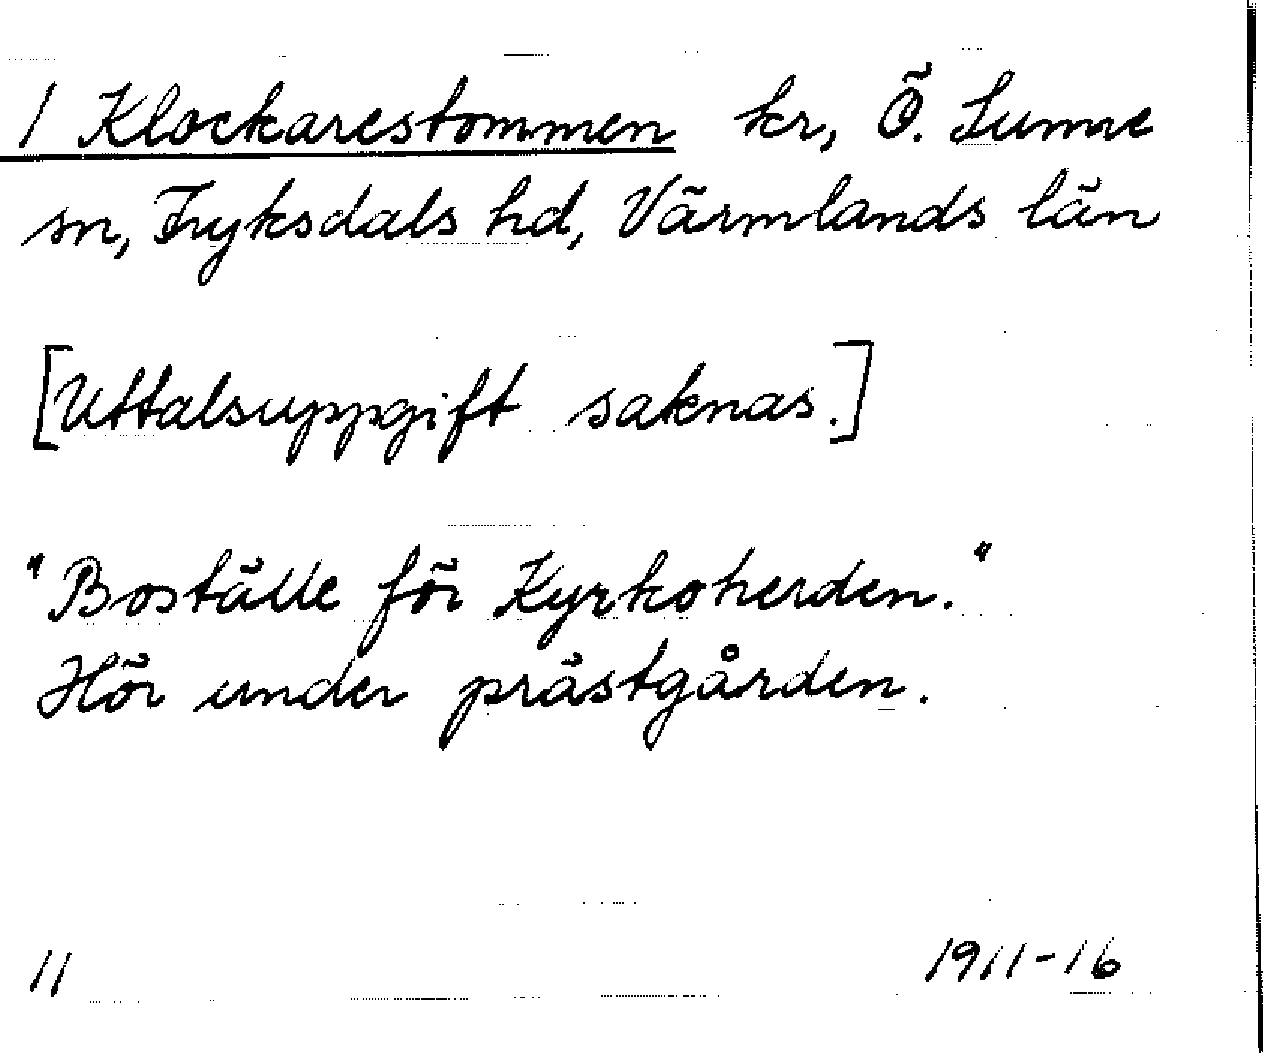 1 Klockarestommen kr, Ö. Sunne
sn, Fryksdals hd, Värmlands län
[Uttalsuppgift saknas.]
"Boställe för Kyrkoherden."
Hör under prästgården.
11 1911-16